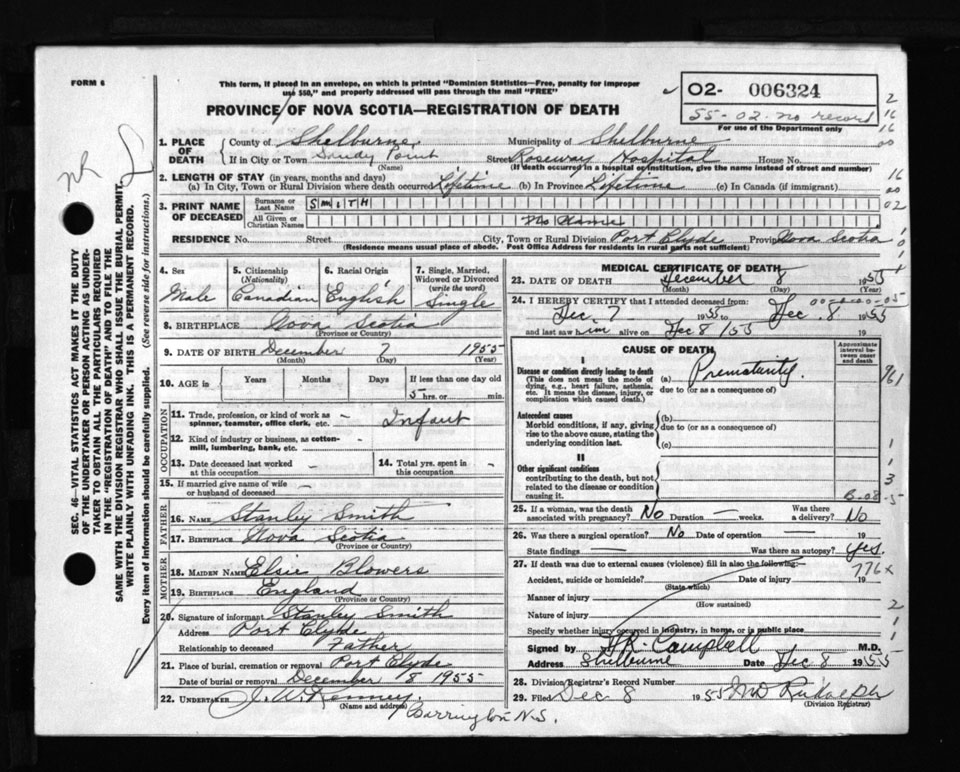 FORM 6
This form, if placed in an envelope, on which is printed "Dominion Statistics—Free, penalty for improper
use $50," and properly addressed will pass through the mail "FREE"
PROVINCE OF NOVA SCOTIA—REGISTRATION OF DEATH
02- 006324
55-02. no record
For use of the Department only
1. PLACE OF DEATH
County of Shelburne Municipality of Shelburne
If in City or Town Sandy Point Street Roseway Hospital House No.
(Name) (If death occurred in a hospital or institution, give the name instead of street and number)
2. LENGTH OF STAY (in years, months and days)
(a) In City, Town or Rural Division where death occurred Lifetime (b) In Province Lifetime (c) In Canada (if immigrant)
3. PRINT NAME OF DECEASED
Surname or Last Name SMITH
All Given or Christian Names No Name
RESIDENCE No. Street City, Town or Rural Division Port Clyde Province Nova Scotia
(Residence means usual place of abode. Post Office Address for residents in rural parts not sufficient)
4. Sex Male
5. Citizenship (Nationality) Canadian
6. Racial Origin English
7. Single, Married, Widowed or Divorced (write the word) Single
8. BIRTHPLACE Nova Scotia
(Province or Country)
9. DATE OF BIRTH December 7 1955
(Month) (Day) (Year)
10. AGE in Years Months Days If less than one day old
5 hrs. or min.
OCCUPATION
11. Trade, profession, or kind of work as spinner, teamster, office clerk, etc. - Infant
12. Kind of industry or business, as cotton-mill, lumbering, bank, etc. -
13. Date deceased last worked at this occupation -
14. Total yrs. spent in this occupation -
15. If married give name of wife or husband of deceased -
FATHER
16. NAME Stanley Smith
17. BIRTHPLACE Nova Scotia
(Province or Country)
MOTHER
18. MAIDEN NAME Elsie Blowers
19. BIRTHPLACE England
(Province or Country)
20. Signature of informant Stanley Smith
Address Port Clyde
Relationship to deceased Father
21. Place of burial, cremation or removal Port Clyde
Date of burial or removal December 8 1955
22. UNDERTAKER J. W. Kenney.
(Name and address) Barrington N.S.
MEDICAL CERTIFICATE OF DEATH
23. DATE OF DEATH December 8 1955
(Month) (Day) (Year)
24. I HEREBY CERTIFY that I attended deceased from:
Dec. 7 1955 to Dec. 8 1955
and last saw him alive on Dec 8 / 55 19
CAUSE OF DEATH
Approximate interval between onset and death
I
Disease or condition directly leading to death
(This does not mean the mode of dying, e.g., heart failure, asthenia, etc. It means the disease, injury, or complication which caused death.)
(a) Prematurity.
due to (or as a consequence of)
Antecedent causes
Morbid conditions, if any, giving rise to the above cause, stating the underlying condition last.
(b)
due to (or as a consequence of)
(c)
II
Other significant conditions
contributing to the death, but not related to the disease or condition causing it.
25. If a woman, was the death associated with pregnancy? No Duration — weeks. Was there a delivery? No
26. Was there a surgical operation? No Date of operation —
State findings — Was there an autopsy? Yes.
27. If death was due to external causes (violence) fill in also the following:
776x
Accident, suicide or homicide? Date of injury 19
(State which)
Manner of injury
(How sustained)
Nature of injury
Specify whether injury occurred in industry, in home, or in public place
Signed by Campbell M.D.
Address Shelburne Date Dec 8 1955
28. Division Registrar's Record Number
29. Filed Dec 8 1955
(Division Registrar)
SEC. 46 VITAL STATISTICS ACT MAKES IT THE DUTY
OF THE UNDERTAKER OR PERSON ACTING AS UNDER-
TAKER TO OBTAIN ALL THE PARTICULARS REQUIRED
IN THE "REGISTRATION OF DEATH" AND TO FILE THE
SAME WITH THE DIVISION REGISTRAR WHO SHALL ISSUE THE BURIAL PERMIT.
WRITE PLAINLY WITH UNFADING INK. THIS IS A PERMANENT RECORD.
Every item of information should be carefully supplied. (See reverse side for instructions.)